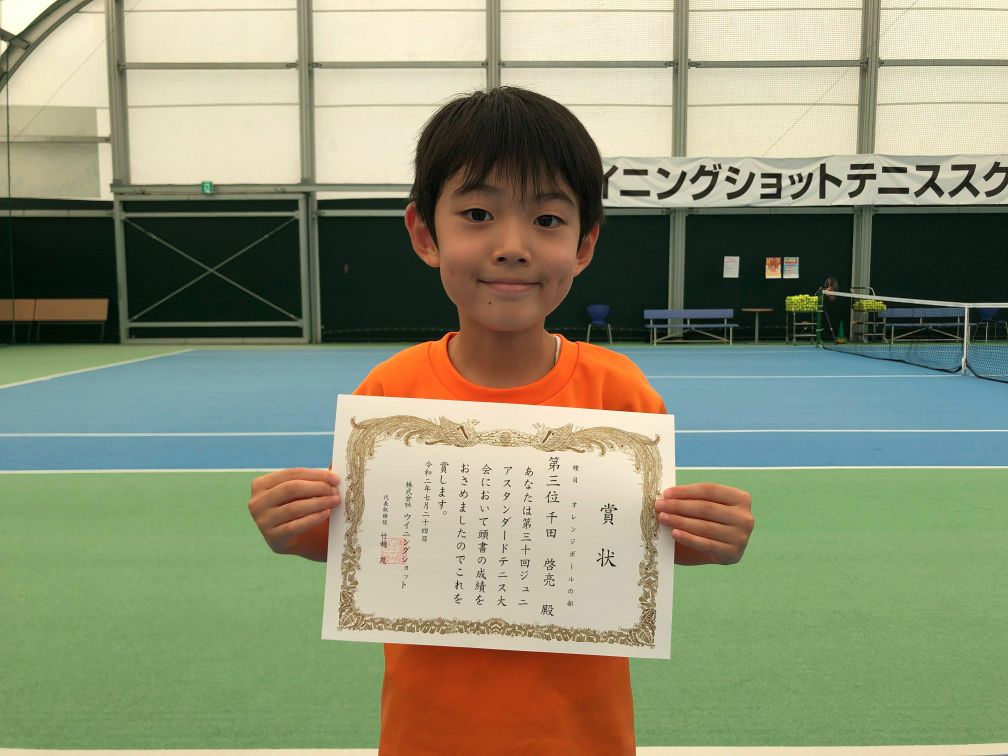 イニングショットテニススク
賞状
種目 オレンジボールの部
第三位 千田 啓亮 殿
あなたは第三十回ジュニ
アスタンダードテニス大
会において頭書の成績を
おさめましたのでこれを
賞します。
令和二年七月二十四日
株式会社 ウイニングショット
代表取締役 竹越